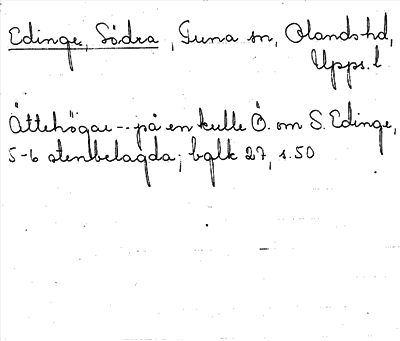 Edinge, Södra, Tuna sn, Olands hd,
Upps. l.
Ättehögar -- på en kulle Ö. om S. Edinge,
5-6 stenbelagda; bglk 27, s. 50